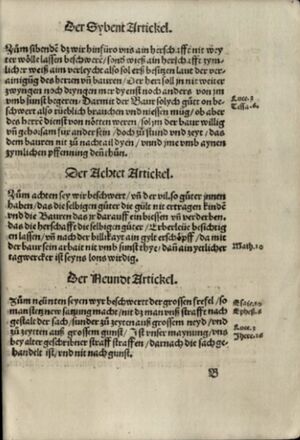 Der Sybent Artickel.
Zům sibendē dz wir hinfüro vns ain herschafft nit wey
ter wölle lassen beschwerē, sond wieß ain herschafft zym-
licher weiß aim verleycht also sol erß besitzen laut der ver-
ainigūg des herren vñ bauren, Der herr soll jn nit weiter
zwyngen noch dryngen mer dyenst noch anders von jm
vmb sunst begeren, Darmit der Baur solych gůt on be-
schwert also rüeblich brauchen vnd niessen müg, ob aber
des herrē dienst von nötten weren, sol jm der baur willig
vñ gehorsam für ander sein, doch zu stund vnd zeyt, das
dem bauren nit zu nachtail dyen, vnnd jme vmb aynen
zymlichen pfenning den thün.
Luce.3
Tessa.6.
Der Achtet Artickel.
Zům achten sey wir beschwert, vñ der vil. so güter jnnen
haben, das die selbigen güter die gült nit ertragen kindē
vnd die Bauren das jr darauff einbiessen vñ verderben,
das die herschafft die selbigen güter, Erberleüt besichtig
en lassen, vñ nach der billikayt ain gylt erschöpff, da mit
der baur sein arbait nit vmb sunst thye, dañ ain yetlicher
tagwercker ist seyns lons wirdig.
Math.10
Der Neundt Artickel.
Zům neünten seyen wyr beschwert der grossen frefel, so
man stets new satzung macht, nit dz man vnß strafft nach
gestalt der sach, sunder zů zeyten auß grossem neyd, vnd
zů zeytten auß grossem gunst, Ist vnser maynung, vns
bey alter geschribner straff straffen, darnach die sach ge-
handelt ist, vnd nit nach gunst.
Esaie.10
Ephes.6
Luce.3
Jhere.26
B